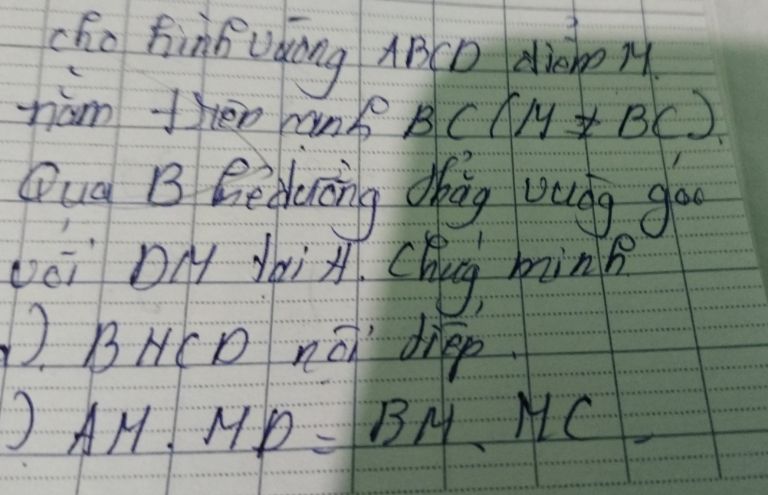 cho hình vuông ABCD điểm M
nằm trên cạnh BC (M ≠ BC).
Qua B kẻ đường thẳg vuôg góc
với DM tại H. Chứg minh
). BHCD nội tiếp.
) AM. MD = BM. MC